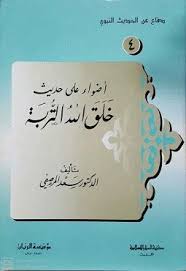 دفاع عن الحديث النبوي
٤
أضواء على حديث
خلق الله التربة
تأليف
الدكتور سعد المرصفي
مؤسسة الريان